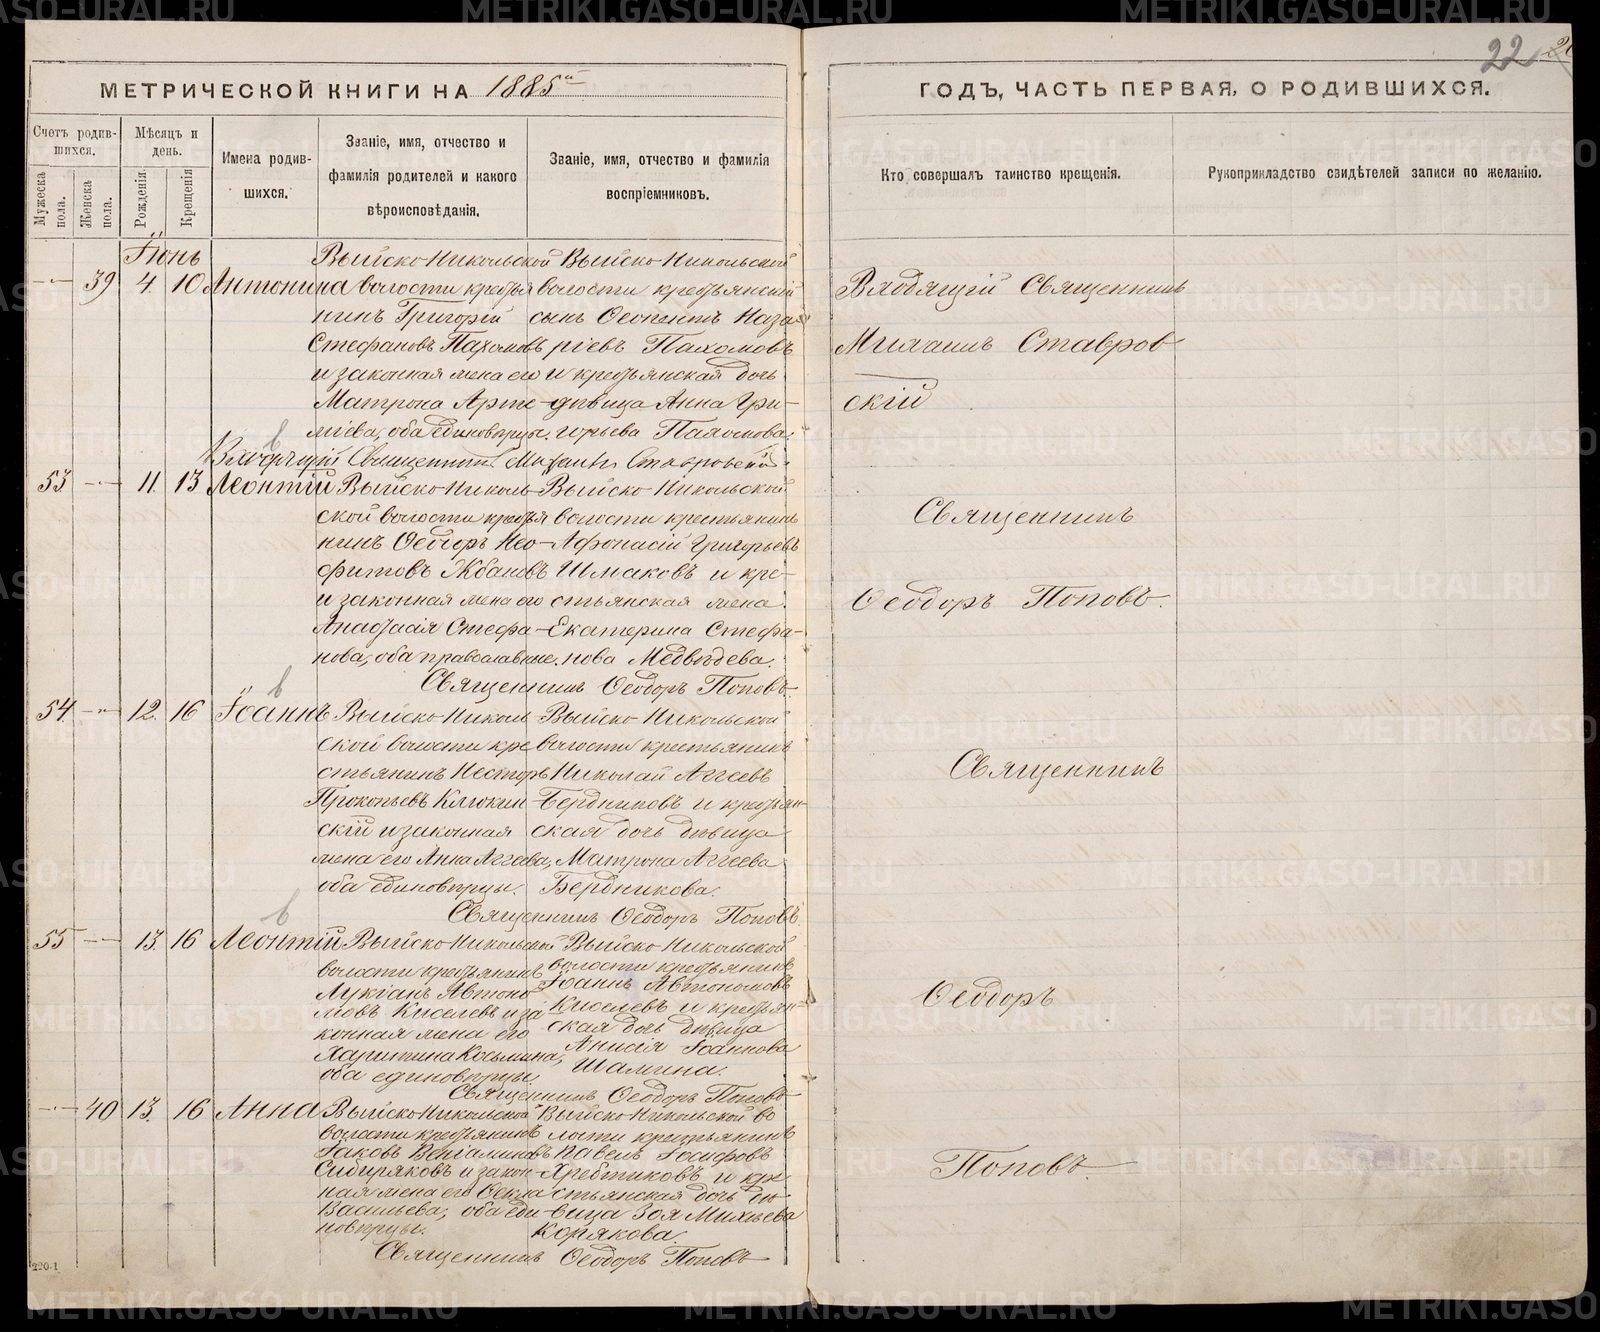 22
МЕТРИЧЕСКОЙ КНИГИ НА 1885й
ГОДЪ, ЧАСТЬ ПЕРВАЯ, О РОДИВШИХСЯ.
Счетъ родив-
шихся.
Мѣсяцъ и
день.
Мужеска
пола.
Женска
пола.
Рожденія.
Крещенія
Имена родив-
шихся.
Званіе, имя, отчество и
фамилія родителей и какого
вѣроисповѣданія.
Званіе, имя, отчество и фамилія
воспріемниковъ.
Кто совершалъ таинство крещенія.
Рукоприкладство свидѣтелей записи по желанію.
Іюнь
39 4. 10 Антонина
Выйско-Никольской
волости кресть я
нинъ Григорій
Стефановъ Пахомовъ
и законная жена его
Матрона Арте-
міева, оба единовѣрцы.
Выйско-Никольской
волости крестьянскій
сынъ Ѳеопентъ Наза-
ріевъ Пахомовъ
и крестьянская дочь
дѣвица Анна Гри-
горьева Пахомова.
Входящій Священникъ
Михаилъ Ставров-
скій
Входящій Священникъ Михаилъ Ставровскій.
53 11. 13 Леонтій
Выйско-Николь-
ской волости крестья
нинъ Ѳеодоръ Нео-
фитовъ Жбановъ
и законная жена его
Анастасія Стефа-
нова, оба православные.
Выйско-Никольской
волости крестьянинъ
Афонасій Григорьевъ
Шмаковъ и кре-
стьянская жена
Екатерина Стефа-
нова Медвѣдева.
Священникъ
Ѳеодоръ Поповъ.
Священникъ Ѳеодоръ Поповъ.
54 12. 16 Іоаннъ
Выйско-Николь
ской волости кре
стьянинъ Несторъ
Прокопьевъ Клюкин-
скій и законная
жена его Анна Аггеева,
оба единовѣрцы.
Выйско-Никольской
волости крестьянинъ
Николай Аггеевъ
Бердниковъ и крестьян-
ская дочь дѣвица
Матрона Аггеева
Бердникова.
Священникъ
Священникъ Ѳеодоръ Поповъ.
55 13. 16 Леонтій
Выйско-Никольской
волости крестьянинъ
Лукіанъ Автоно
мовъ Киселевъ и за
конная жена его
Харитина Косьмина,
оба единовѣрцы.
Выйско-Никольской
волости крестьянинъ
Іоаннъ Автономовъ
Киселевъ и крестьян-
ская дочь дѣвица
Анисія Іоаннова
Шамина.
Ѳеодоръ
Священникъ Ѳеодоръ Поповъ
40 13. 16 Анна
Выйско-Никольской
волости крестьянинъ
Іаковъ Веніаминовъ
Сибиряковъ и закон-
ная жена его Ѳекла
Васильева, оба еди-
новѣрцы.
Выйско-Никольской во
лости крестьянинъ
Павелъ Іосифовъ
Хребтиковъ и кре
стьянская дочь дѣ-
вица Зоя Михѣева
Корякова.
Поповъ.
Священникъ Ѳеодоръ Поповъ
220-1
METRIKI.GASO-URAL.RU